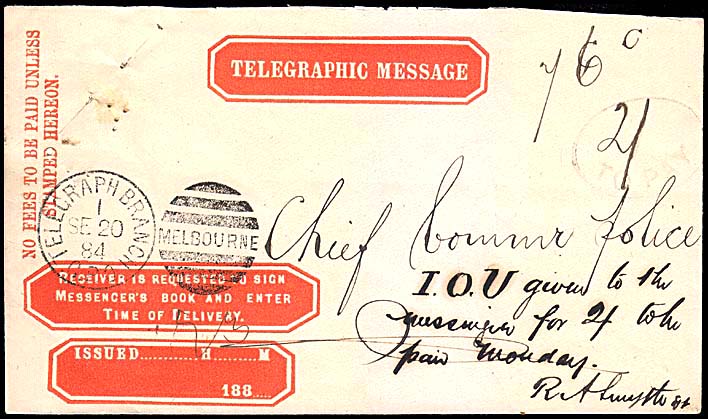 NO FEES TO BE PAID UNLESS
STAMPED HEREON.
TELEGRAPHIC MESSAGE
2/
TO PAY
TELEGRAPH BRANCH
1
SE 20
84
MELBOURNE
Chief Commr Police
I.O.U given to the
messenger for 2/ to be
paid Monday.
RECEIVER IS REQUESTED TO SIGN
MESSENGER'S BOOK AND ENTER
TIME OF DELIVERY.
ISSUED..........H..........M
188.....